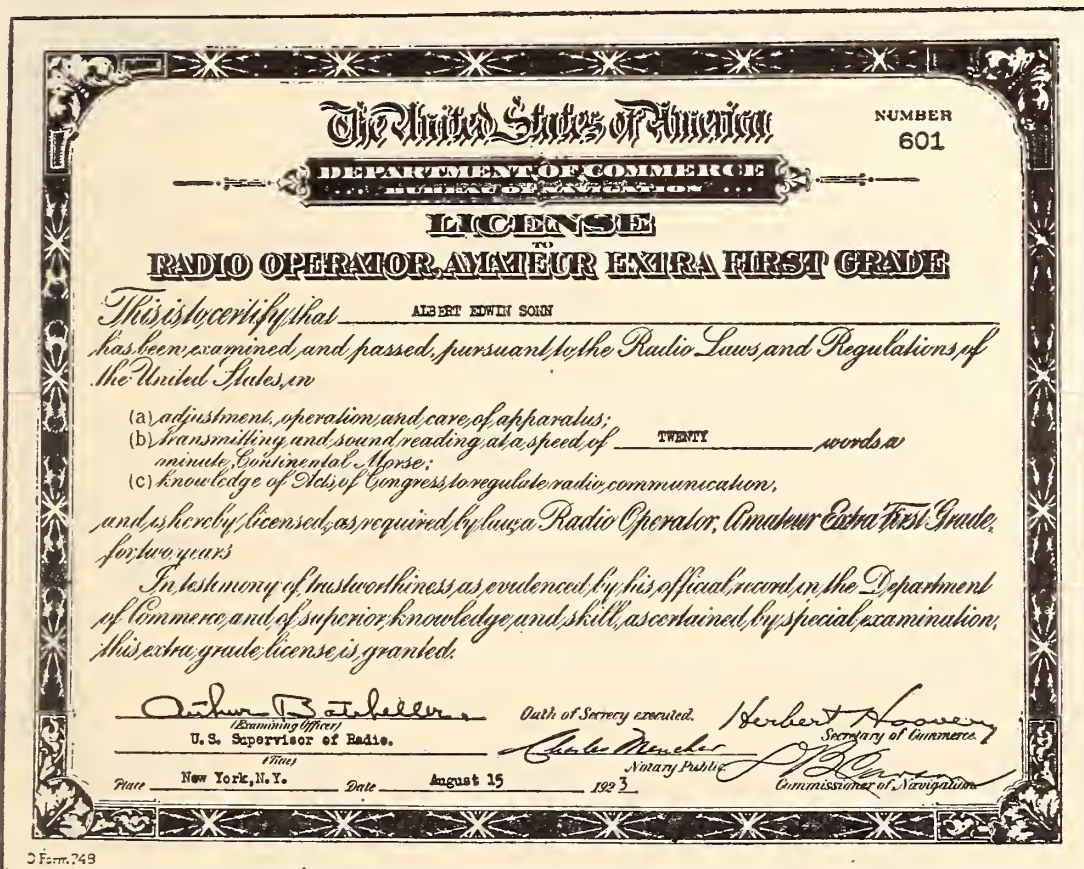 The United States of America
NUMBER
601
DEPARTMENT OF COMMERCE
... BUREAU OF NAVIGATION ...
LICENSE
TO
RADIO OPERATOR, AMATEUR EXTRA FIRST GRADE
This is to certify that ALBERT EDWIN SONN
has been examined and passed, pursuant to the Radio Laws and Regulations of
the United States, in
(a) adjustment, operation, and care of apparatus;
(b) transmitting and sound reading at a speed of TWENTY words a
minute, Continental Morse;
(c) knowledge of Acts of Congress to regulate radio communication,
and is hereby licensed, as required by law, a Radio Operator, Amateur Extra First Grade,
for two years
In testimony of trustworthiness as evidenced by his official record in the Department
of Commerce, and of superior knowledge and skill, ascertained by special examination,
this extra grade license is granted.
Arthur Batcheller
(Examining Officer)
U.S. Supervisor of Radio.
(Title)
Place New York, N.Y. Date August 15 1923
Oath of Secrecy executed.
Charles Mencher
Notary Public
Herbert Hoover
Secretary of Commerce
Commissioner of Navigation
Form 748